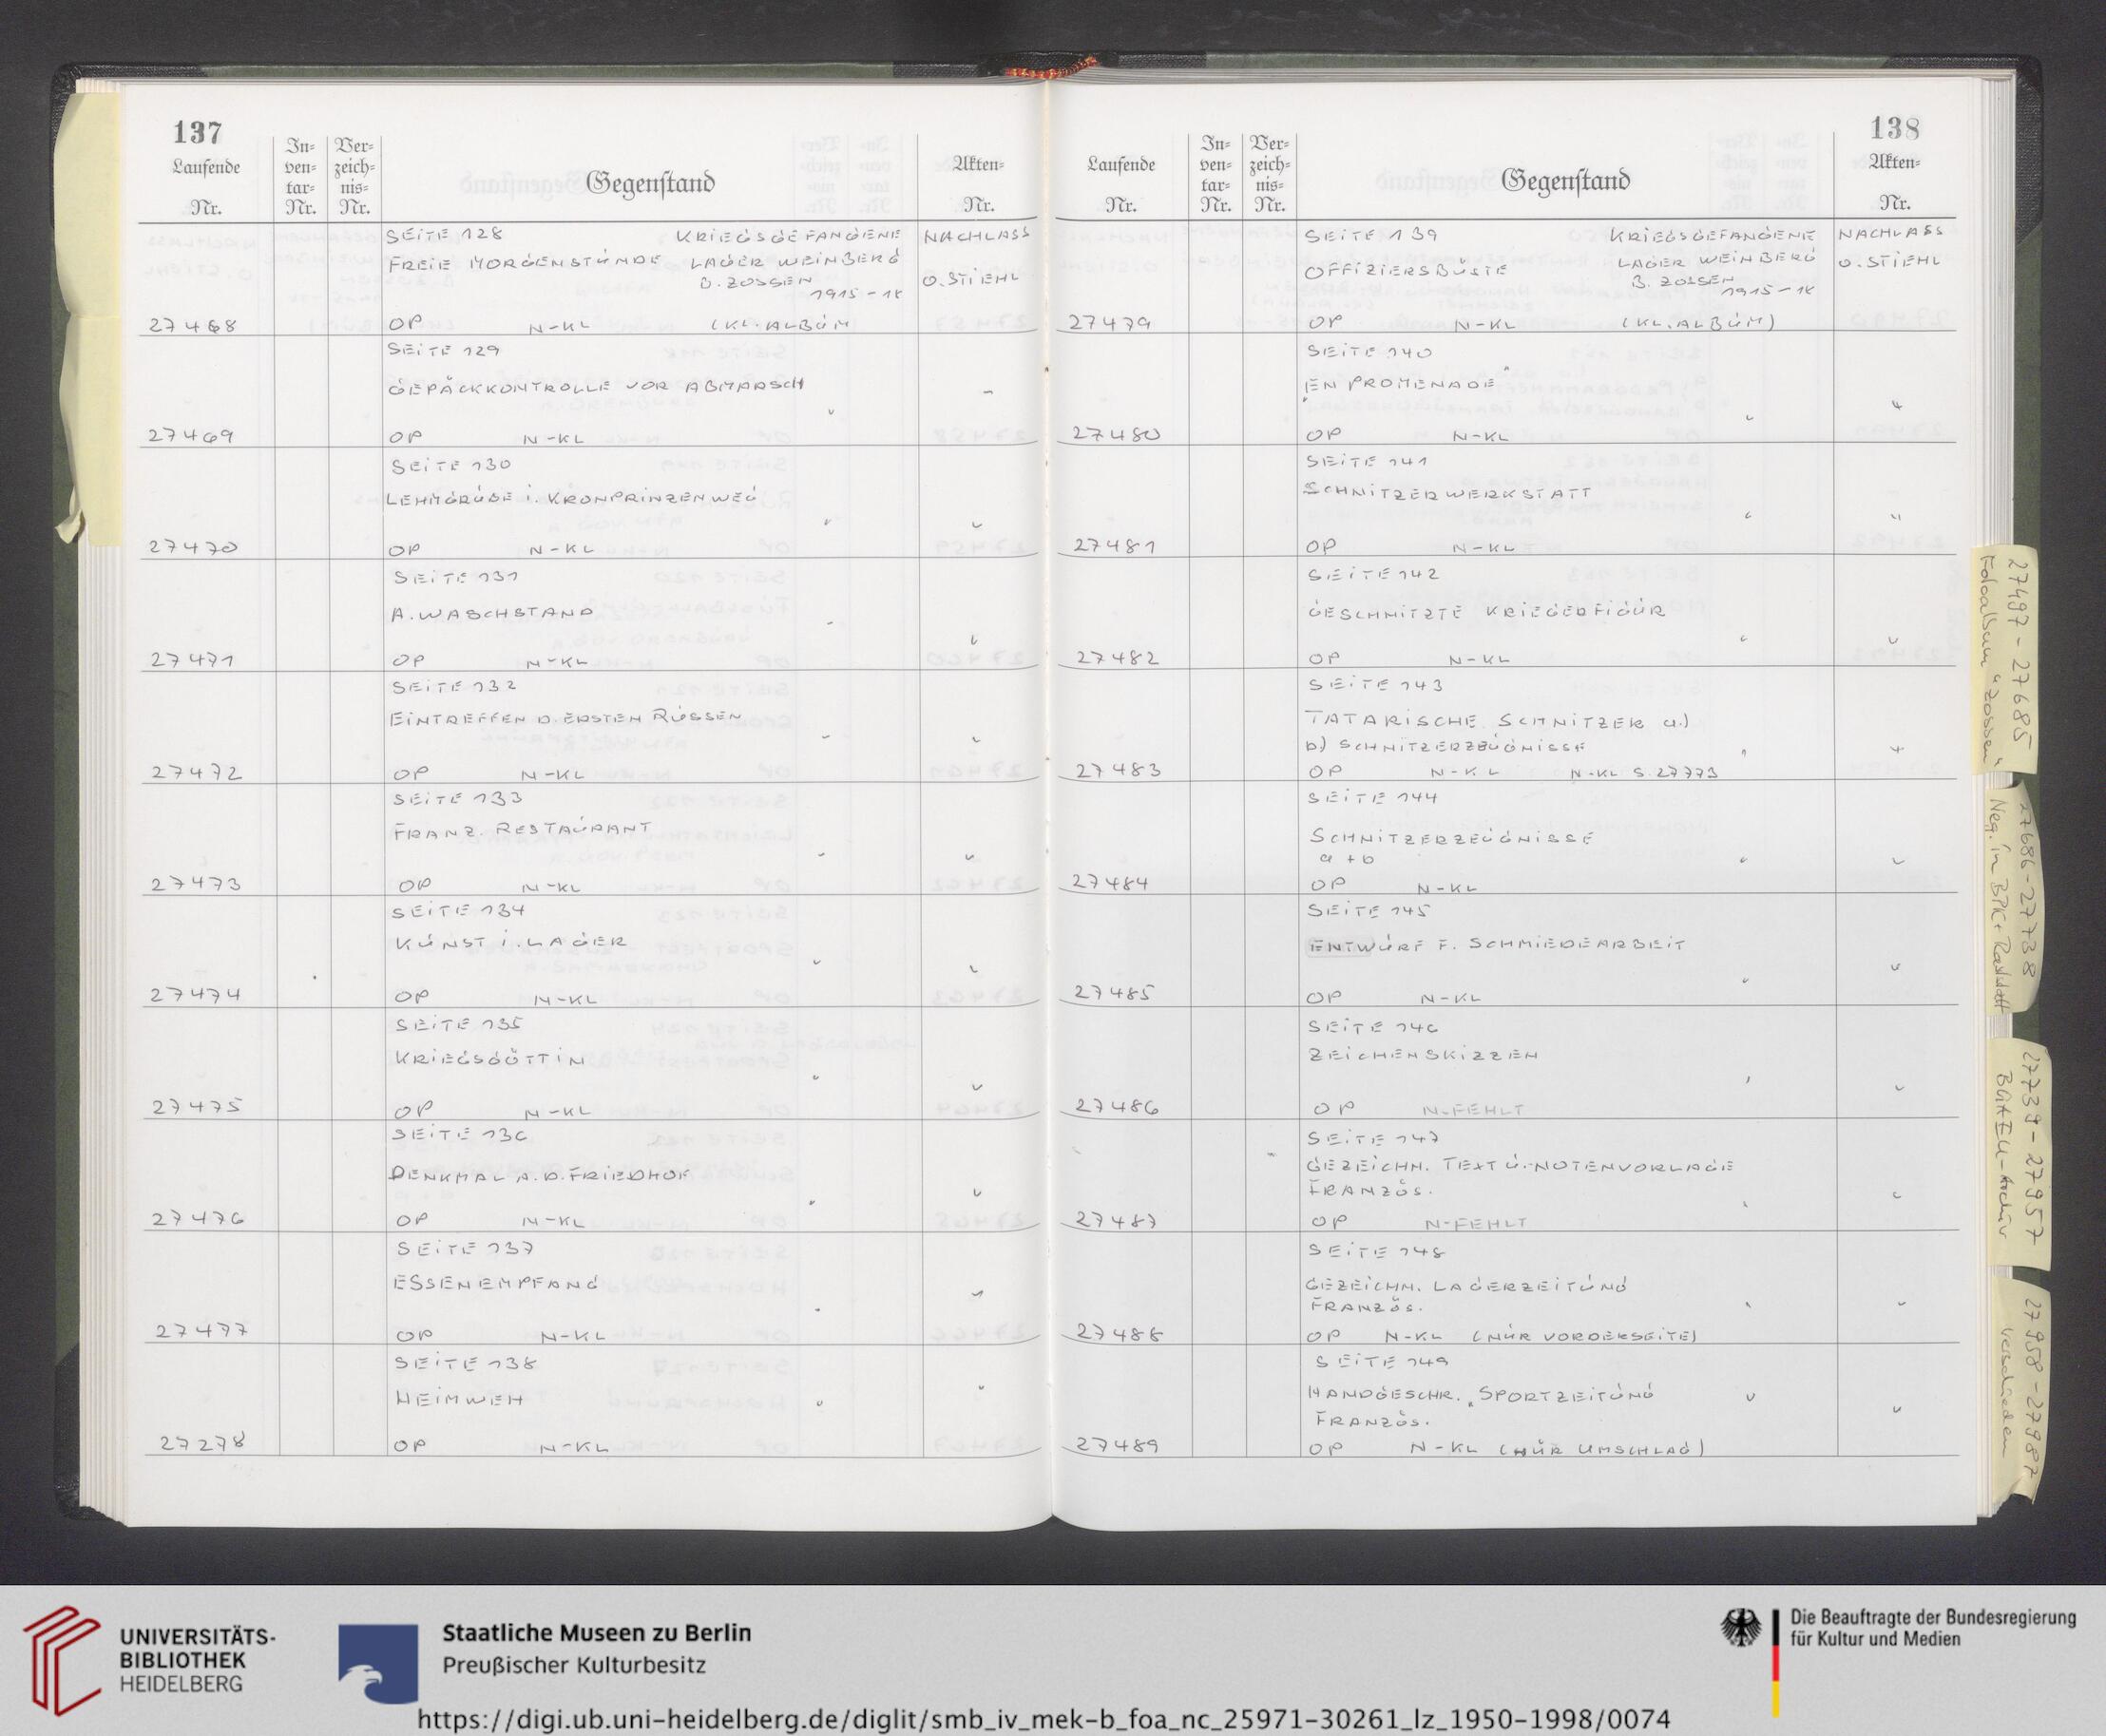 137
Laufende
Nr.
In-
ven-
tar-
Nr.
Ver-
zeich-
nis-
Nr.
Gegenstand
Akten-
Nr.
SEITE 128 KRIEGSGEFANGENE NACHLASS
FREIE MORGENSTUNDE LAGER WEINBERG
B. ZOSSEN O. STIEHL
1915-18
27468 OP N-KL (KL. ALBUM
SEITE 129
GEPÄCKKONTROLLE VOR ABMARSCH
27469 OP N-KL
SEITE 130
LEHMGRUBE i. KRONPRINZENWEG
27470 OP N-KL
SEITE 131
A. WASCHSTAND
27471 OP N-KL
SEITE 132
EINTREFFEN D. ERSTEN RUSSEN
27472 OP N-KL
SEITE 133
FRANZ. RESTAURANT
27473 OP N-KL
SEITE 134
KUNST i. LAGER
27474 OP N-KL
SEITE 135
KRIEGSGÖTTIN
27475 OP N-KL
SEITE 136
DENKMAL A. D. FRIEDHOF
27476 OP N-KL
SEITE 137
ESSENEMPFANG
27477 OP N-KL
SEITE 138
HEIMWEH
27278 OP N-KL
138
Laufende
Nr.
In-
ven-
tar-
Nr.
Ver-
zeich-
nis-
Nr.
Gegenstand
Akten-
Nr.
SEITE 139 KRIEGSGEFANGENE NACHLASS
OFFIZIERSBÜSTE LAGER WEINBERG O. STIEHL
B. ZOSSEN
1915-18
27479 OP N-KL (KL. ALBUM)
SEITE 140
„EN PROMENADE"
27480 OP N-KL
SEITE 141
SCHNITZERWERKSTATT
27481 OP N-KL
SEITE 142
GESCHNITZTE KRIEGERFIGUR
27482 OP N-KL
SEITE 143
TATARISCHE SCHNITZER a.)
b) SCHNITZERZEUGNISSE
27483 OP N-KL N-KL S. 27773
SEITE 144
SCHNITZERZEUGNISSE
a + b
27484 OP N-KL
SEITE 145
ENTWURF F. SCHMIEDEARBEIT
27485 OP N-KL
SEITE 146
ZEICHENSKIZZEN
27486 OP N-FEHLT
SEITE 147
GEZEICHN. TEXT U. NOTENVORLAGE
FRANZÖS.
27487 OP N-FEHLT
SEITE 148
GEZEICHN. LAGERZEITUNG
FRANZÖS.
27488 OP N-KL (NUR VORDERSEITE)
SEITE 149
HANDGESCHR. „SPORTZEITUNG
FRANZÖS.
27489 OP N-KL (NUR UMSCHLAG)
27497 - 27685
"Zossen"
27686-27738
Neg. in BPK + Rastatt
27739 - 27957
BGAEU-Archiv
27958 - 27987
verschieden
UNIVERSITÄTS-
BIBLIOTHEK
HEIDELBERG
Staatliche Museen zu Berlin
Preußischer Kulturbesitz
Die Beauftragte der Bundesregierung
für Kultur und Medien
https://digi.ub.uni-heidelberg.de/diglit/smb_iv_mek-b_foa_nc_25971-30261_lz_1950-1998/0074